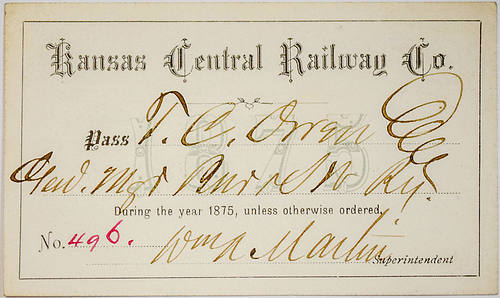 Kansas Central Railway Co.
Pass T. C.
1875
Genl. Mgr S W Ry.
During the year 1875, unless otherwise ordered,
No. 496. Wm Martin
Superintendent